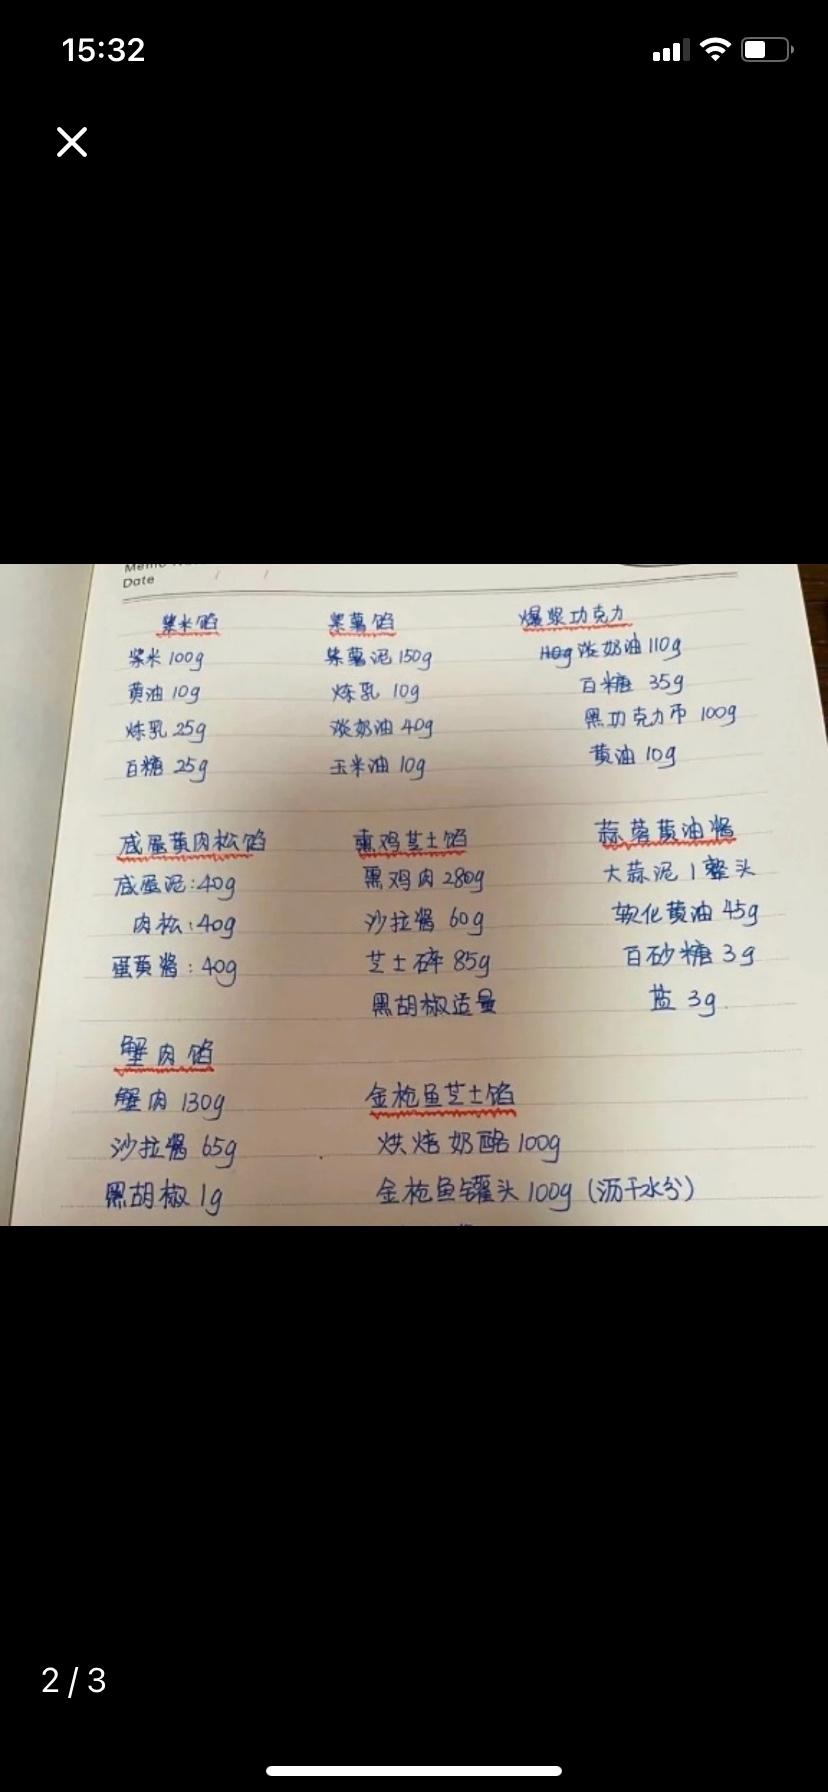 15:32
Date
紫米馅
紫米 100g
黄油 10g
炼乳 25g
白糖 25g
紫薯馅
紫薯泥 150g
炼乳 10g
淡奶油 40g
玉米油 10g
爆浆功克力
淡奶油 110g
白糖 35g
黑功克力币 100g
黄油 10g
咸蛋黄肉松馅
咸蛋泥:40g
肉松:40g
蛋黄酱:40g
熏鸡芝士馅
黑鸡肉 280g
沙拉酱 60g
芝士碎 85g
黑胡椒适量
蒜蓉黄油酱
大蒜泥 1 整头
软化黄油 45g
白砂糖 3g
盐 3g
蟹肉馅
蟹肉 130g
沙拉酱 65g
黑胡椒 1g
金枪鱼芝士馅
烘焙奶酪 100g
金枪鱼罐头 100g (沥干水分)
2 / 3